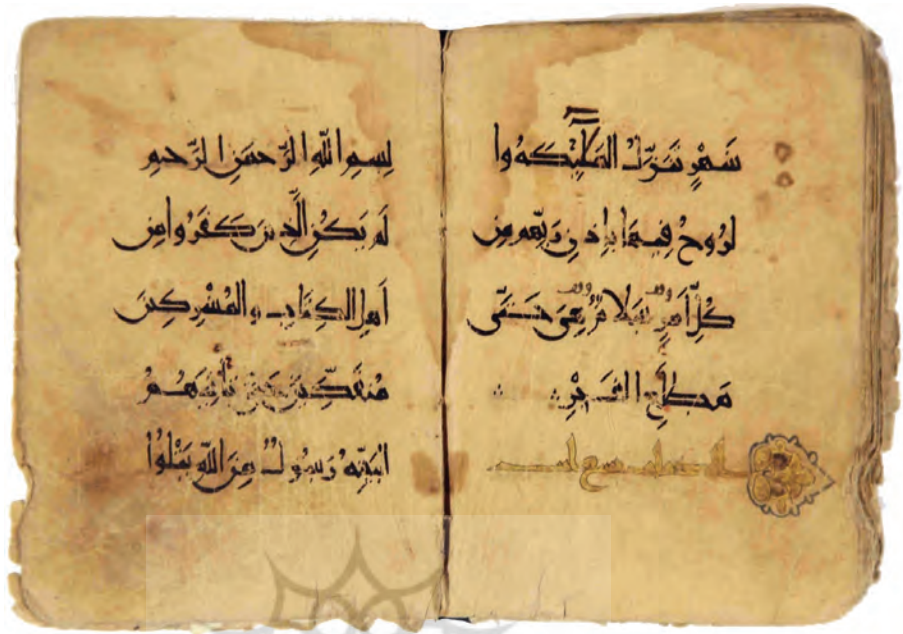 شَهْرٍ تَنَزَّلُ المَلَئِكَةُ وا
لرُوحُ فِيهَا بِإِذنِ رَبِّهِم مِن
كُلِّ أَمرٍ سَلامٌ هِيَ حَتَّى
مَطلَعِ الفَجْرِ
بِسمِ اللهِ الرَّحمَنِ الرَّحِيمِ
لَم يَكُنِ الَّذِينَ كَفَرُوا مِن
أَهلِ الكِتَابِ والمُشْرِكِينَ
مُنفَكِّينَ حَتَّى تَأتِيَهُمُ
البَيِّنَةُ رَسُولٌ مِنَ اللهِ يَتْلُوا